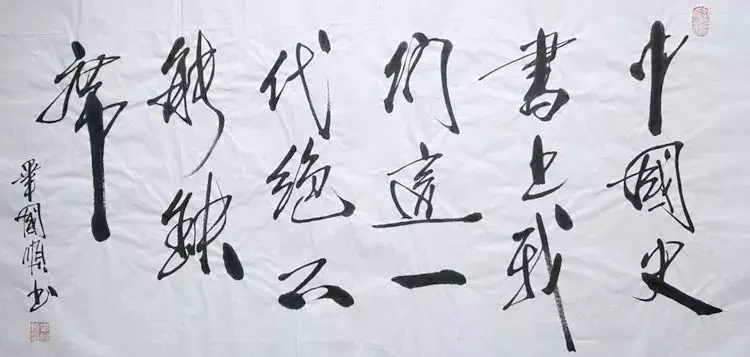 中國史
書上我
们這一
代絕不
能缺
席
畢國順书